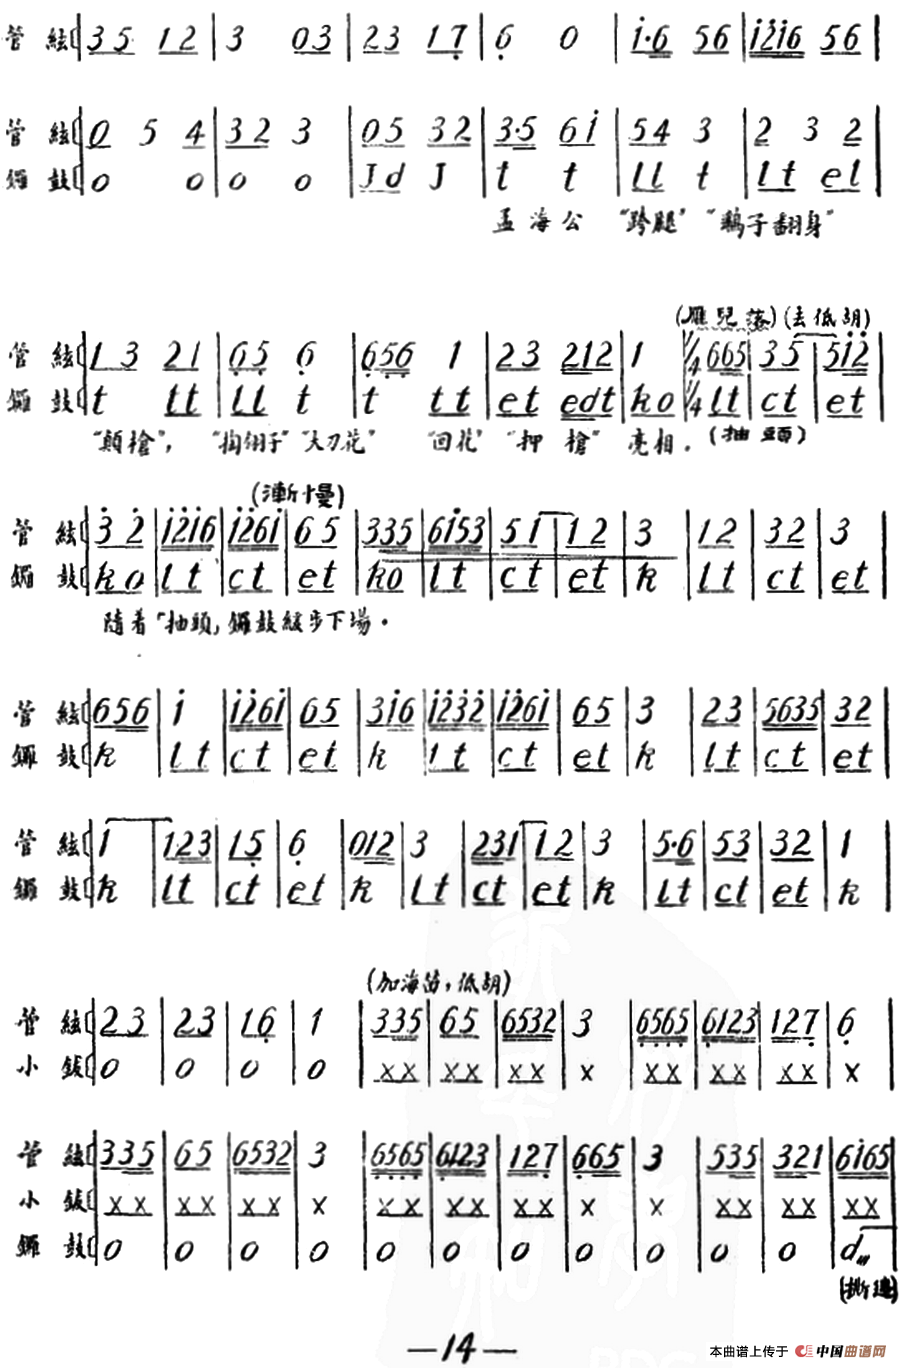 管 絃 3 5 1 2 | 3 0 3 | 2 3 1 7 | 6 0 | i·6 5 6 | i 2 i 6 5 6 |
管 絃 0 5 4 | 3 2 3 | 0 5 3 2 | 3·5 6 i | 5 4 3 | 2 3 2 |
鑼 鼓 0 0 | 0 0 | J d J | t t | l l t | l t e l |
孟海公 "跨腿" "鷂子翻身"
(雁兒落) (去低胡)
管 絃 1 3 2 1 | 6 5 6 | 6 5 6 1 | 2 3 2 1 2 | 1 | 1/4 6 6 5 | 3 5 | 5 i 2 |
鑼 鼓 t t t | l l t | t t t | e t e d t | k o | 1/4 l t | c t | e t |
"顛槍", "掏翎子" "大刀花" "回花" "押槍" 亮相. (抽頭)
(漸慢)
管 絃 3 2 | i 2 i 6 | i 2 6 i | 6 5 | 3 3 5 | 6 i 5 3 | 5 1 | 1 2 | 3 | 1 2 | 3 2 | 3
鑼 鼓 k o | l t | c t | e t | k o | l t | c t | e t | k | l t | c t | e t |
隨着「抽頭」鑼鼓緩步下場.
管 絃 6 5 6 | i | i 2 6 i | 6 5 | 3 i 6 | i 2 3 2 | i 2 6 i | 6 5 | 3 | 2 3 | 5 6 3 5 | 3 2 |
鑼 鼓 k | l t | c t | e t | k | l t | c t | e t | k | l t | c t | e t |
管 絃 1 | 1 2 3 | 1 5 | 6 | 0 1 2 | 3 | 2 3 1 | 1 2 | 3 | 5·6 | 5 3 | 3 2 | 1 |
鑼 鼓 k | l t | c t | e t | k | l t | c t | e t | k | l t | c t | e t | k |
(加海笛,低胡)
管 絃 2 3 | 2 3 | 1 6 | 1 | 3 3 5 | 6 5 | 6 5 3 2 | 3 | 6 5 6 5 | 6 1 2 3 | 1 2 7 | 6 |
小 鈸 0 | 0 | 0 | 0 | x x | x x | x x | x | x x | x x | x x | x |
管 絃 3 3 5 | 6 5 | 6 5 3 2 | 3 | 6 5 6 5 | 6 1 2 3 | 1 2 7 | 6 6 5 | 3 | 5 3 5 | 3 2 1 | 6 i 6 5 |
小 鈸 x x | x x | x x | x | x x | x x | x x | x | x | x x | x x | x x |
鑼 鼓 0 | 0 | 0 | 0 | 0 | 0 | 0 | 0 | 0 | 0 | 0 | d
(撕邊)
—14—
本曲谱上传于 中国曲谱网